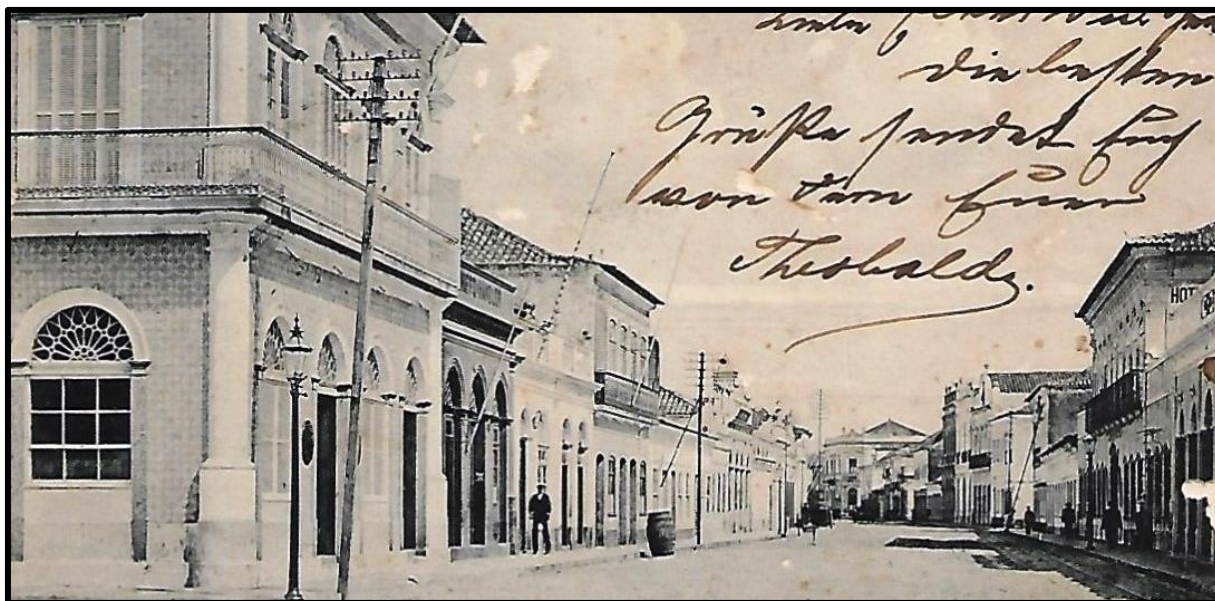 die besten
Grüße sendet Euch
von Fern Euer
Theobald.
HOT